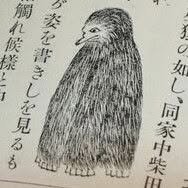 の如し、同家中柴田
が姿を書きし見るも
触れ候様と